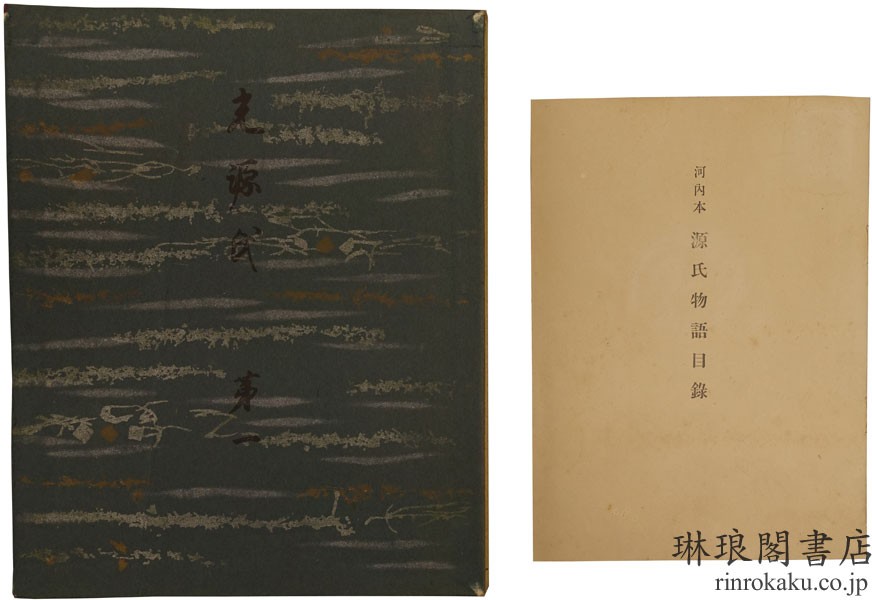 光源氏 第一
河内本 源氏物語目錄
琳琅閣書店
rinrokaku.co.jp